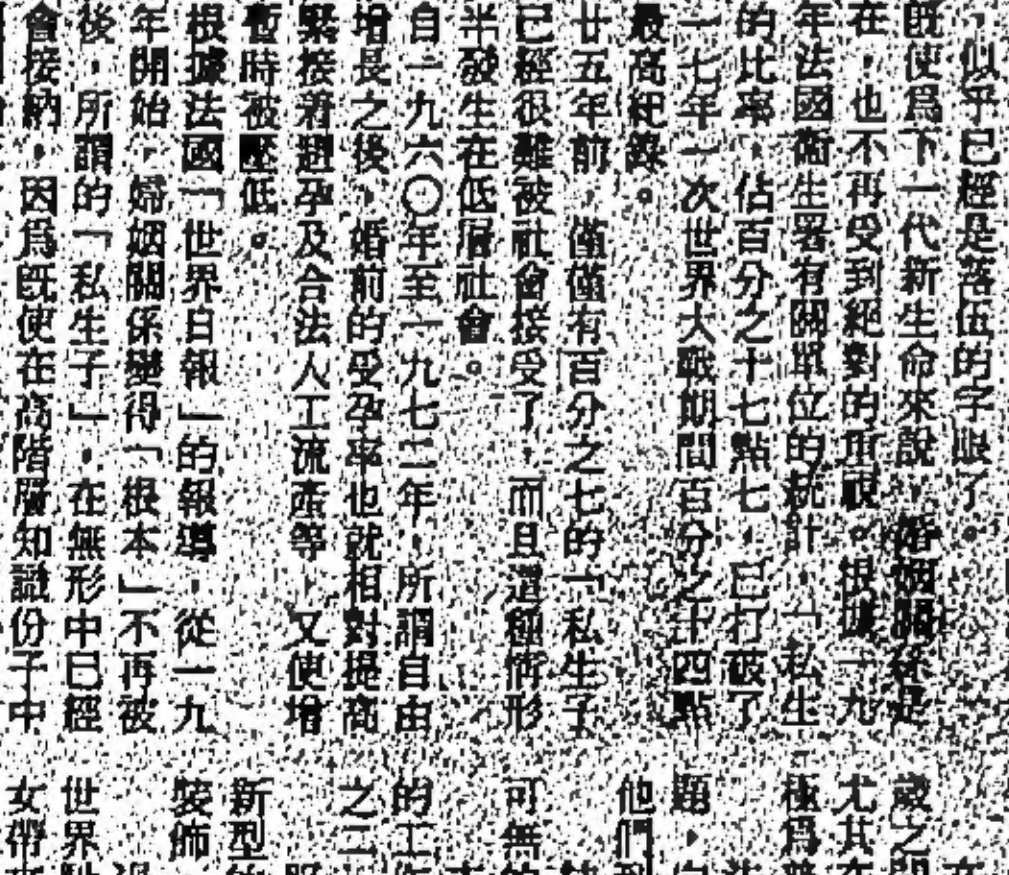 ，似乎已經是落伍的字眼了。
既使爲下一代新生命來說，婚姻關係是
在，也不再受到絕對的重視。根據一九
年法國衛生署有關單位的統計，「私生
的比率，佔百分之十七點七，已打破了
一七年一次世界大戰期間百分之十四點
最高紀錄。
廿五年前，僅僅有百分之七的「私生子
已經很難被社會接受了，而且這種情形
半發生在低層社會。
自一九六〇年至一九七二年，所謂自由
增長之後，婚前的受孕率也就相對提高
緊接着避孕及合法人工流產等，又使增
暫時被壓低。
根據法國「世界日報」的報導，從一九
年開始，婚姻關係變得「根本」不再被
後，所謂的「私生子」，在無形中已經
會接納，因爲既使在高階層知識份子中
歲之間
尤其在
極爲普
題，向
他們到
可無的
的工作
之二
新型
裝飾
世界
女帶來